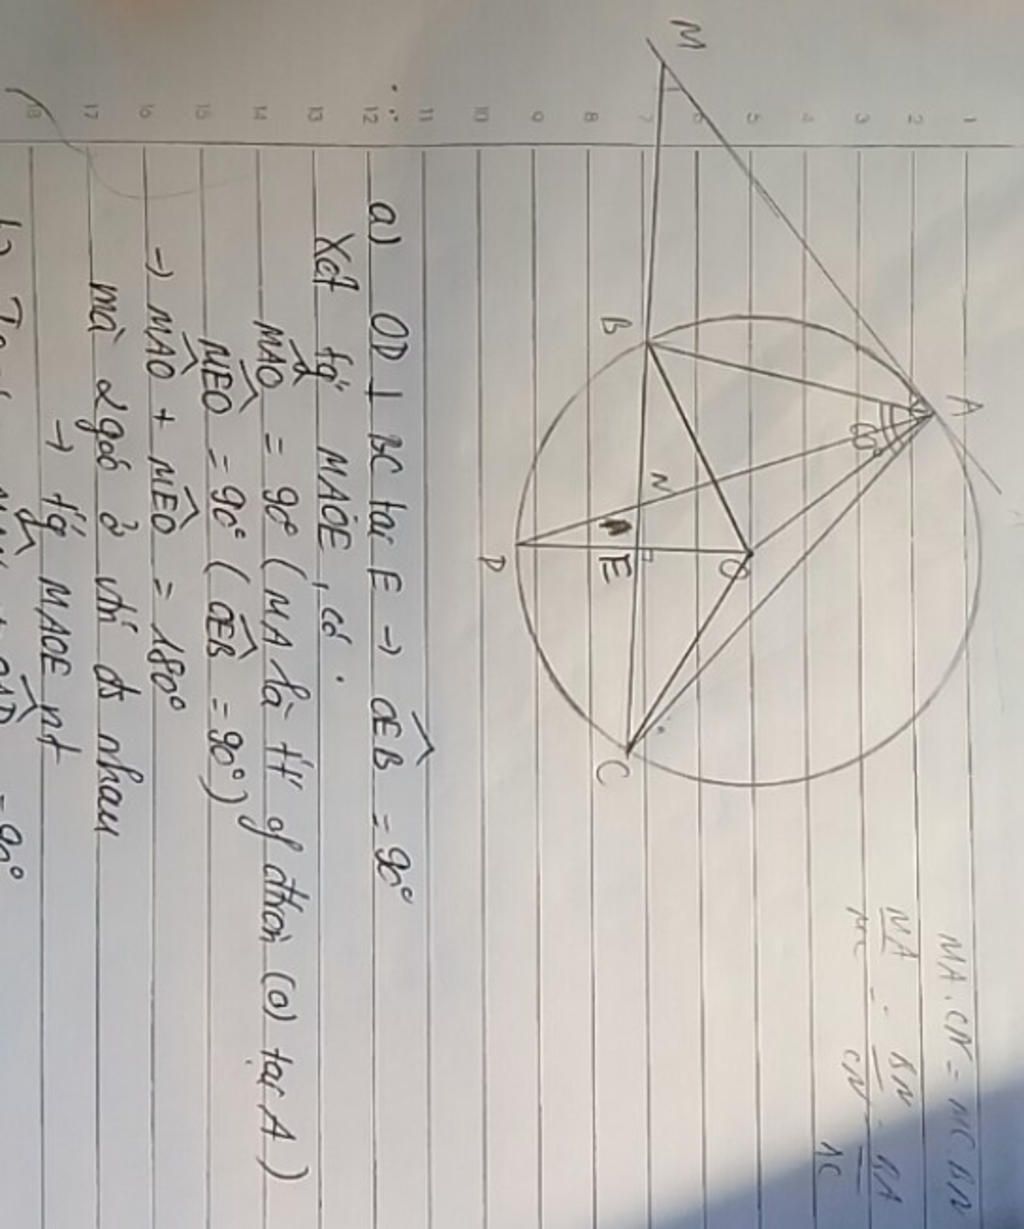 M
A
B
60°
N
E
O
D
C
MA.CN = MC.BN
MA
BN
BA
MC
CN
AC
1
2
3
4
5
6
7
8
9
10
11
12
13
14
15
16
17
18
a) OD ⊥ BC tại E → OEB = 90°
Xét tg MAOE, có
MAO = 90° (MA là tt of đtròn (O) tại A)
MEO = 90° (OEB = 90°)
→ MAO + MEO = 180°
mà 2 góc ở vtrí đ nhau
→ tg MAOE nt